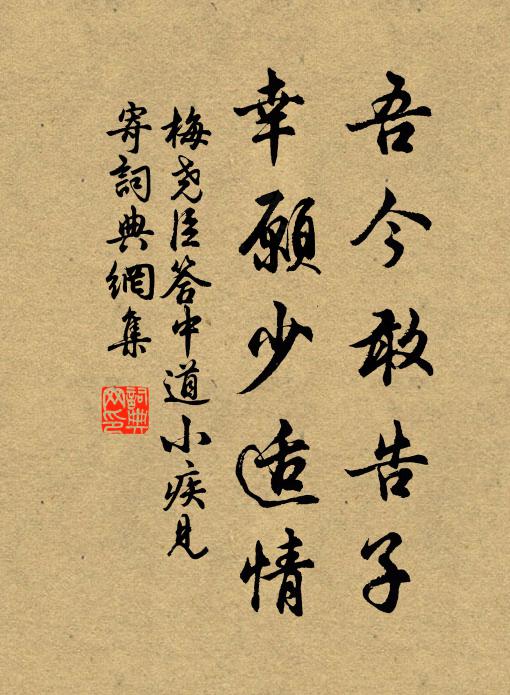 吾今敢告子
幸願少适情
梅尧臣答中道小疾見
寄詞典網集
詞典
网印